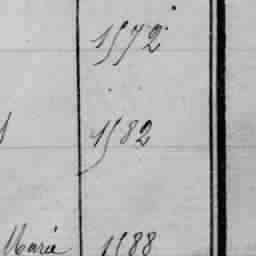 1572
1582
Marie 1588